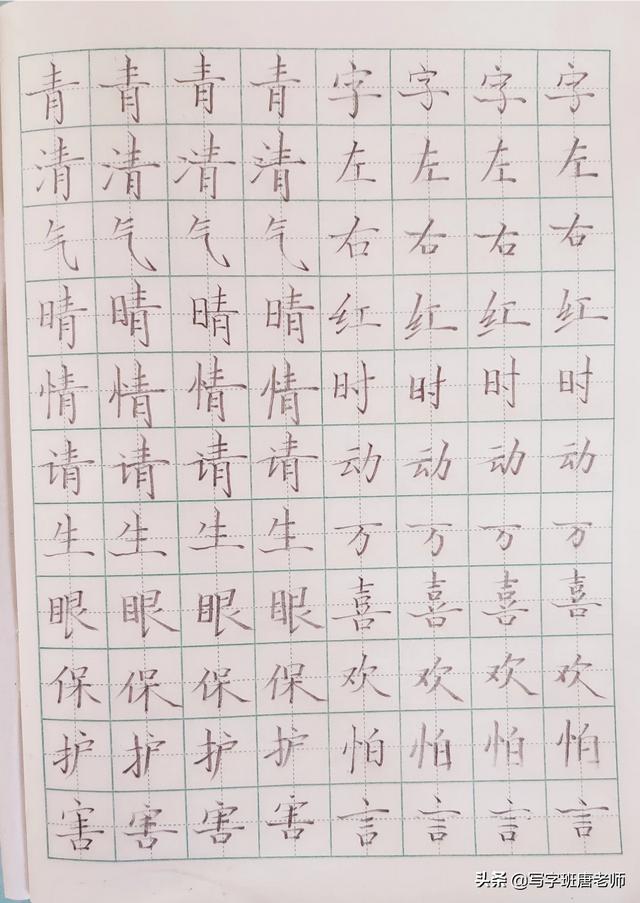 青青青青字字字字
清清清清左左左左
气气气气右右右右
晴晴晴晴红红红红
情情情情时时时时
请请请请动动动动
生生生生万万万万
眼眼眼眼喜喜喜喜
保保保保欢欢欢欢
护护护护怕怕怕怕
害害害害言言言言
头条 @写字班唐老师